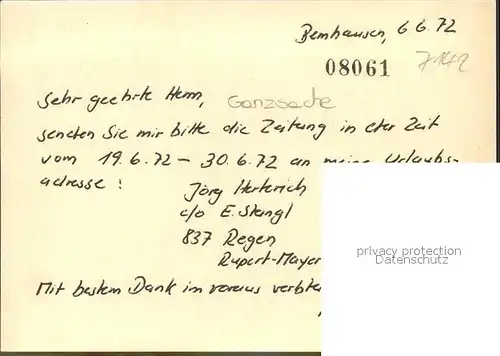 Bernhausen, 6 6. 72
08061 7142
Sehr geehrte Herrn,
Ganzsache
senden Sie mir bitte die Zeitung in der Zeit
vom 19.6.72 – 30.6.72 an meine Urlaubs-
adresse :
Jörg Herterich
c/o E. Stangl
837 Regen
Rupert-Mayer
privacy protection
Datenschutz
Mit bestem Dank im voraus verble